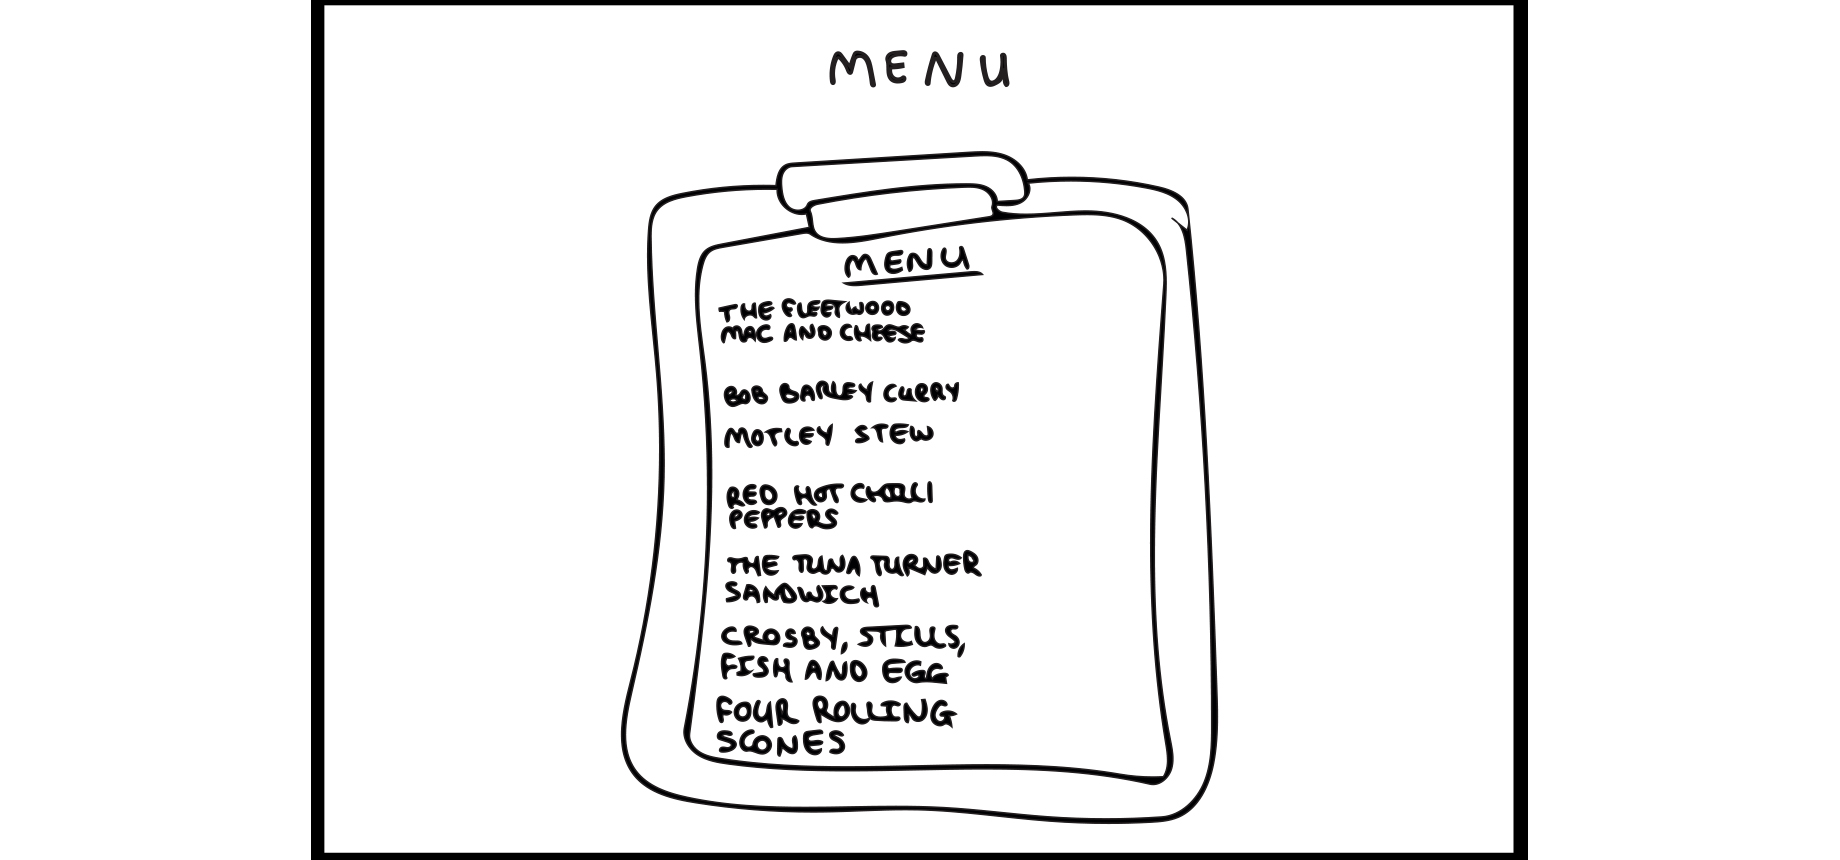 MENU
MENU
THE FLEETWOOD
MAC AND CHEESE
BOB BARLEY CURRY
MOTLEY STEW
RED HOT CHILLI
PEPPERS
THE TUNA TURNER
SANDWICH
CROSBY, STILLS,
FISH AND EGG
FOUR ROLLING
SCONES